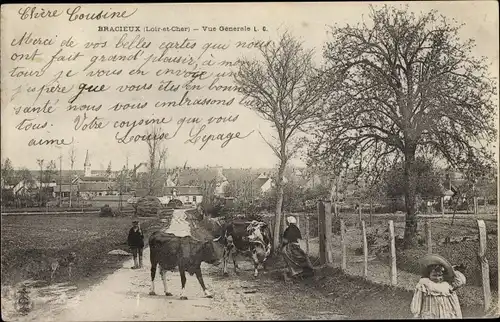 Chère Cousine
BRACIEUX (Loir-et-Cher) — Vue Générale L. C.
Merci de vos belles cartes qui nous
ont fait grand plaisir, à mon
tour je vous en envoie une
j'espère que vous êtes en bonne
santé nous vous embrassons
tous. Votre cousine qui vous
aime Louise Lepage